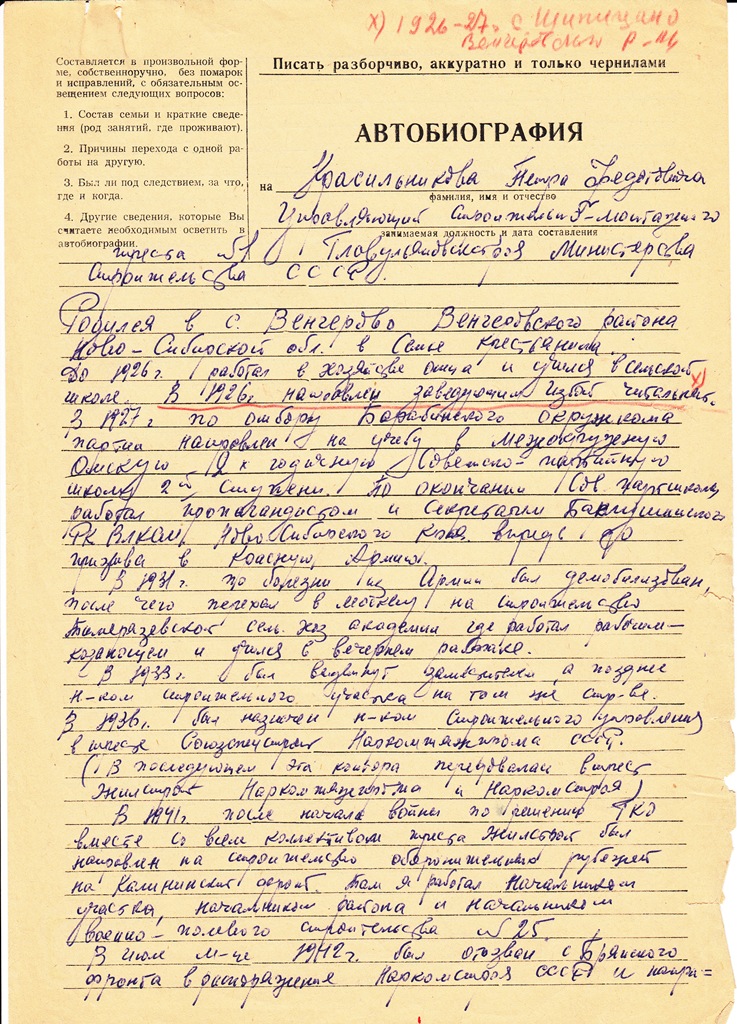 х) 1926-27г. с. Шипицино
Венгеровского р-на
Составляется в произвольной фор-
ме, собственноручно, без помарок
и исправлений, с обязательным ос-
вещением следующих вопросов:
1. Состав семьи и краткие сведе-
ния (род занятий, где проживают).
2. Причины перехода с одной ра-
боты на другую.
3. Был ли под следствием, за что,
где и когда.
4. Другие сведения, которые Вы
считаете необходимым осветить в
автобиографии.
Писать разборчиво, аккуратно и только чернилами
АВТОБИОГРАФИЯ
на Красильникова Петра Федотовича
фамилия, имя и отчество
Управляющий строительно-монтажного
занимаемая должность и дата составления
треста №1 Главульяновскстроя Министерства
Строительства СССР.
Родился в с. Венгерово Венгеровского района
Ново-Сибирской обл. в семье крестьянина.
До 1926г. работал в хозяйстве отца и учился в сельской
школе. В 1926г. направлен заведующим избой читальней. х)
В 1927г. по отбору Барабинского окружкома
партии направлен на учебу в межокружную
Омскую 2х годичную Советско-партийную
школу 2ой ступени. По окончании Сов. партшколы
работал пропагандистом и секретарем
РК ВЛКСМ, Ново-Сибирского края вплоть до
призыва в Красную Армию.
В 1931г. по болезни из Армии был демобилизован,
после чего переехал в Москву на строительство
Тимерязевской сель. хоз академии где работал рабочим-
и учился в вечернем рабфаке.
В 1933г. был выдвинут заместителем, а позднее
н-ком строительного участка на том же стр-ве.
В 1936г. был назначен н-ком Строительного управления
в тресте Наркомтяжпрома СССР.
(В последующем эта контора передовалась в трест
Жилстрой Наркомтяжпрома и Наркомстроя)
В 1941г. после начала войны по решению ГКО
вместе со всем коллективом треста Жилстрой был
направлен на строительство оборонительных рубежей
на Калининский фронт. Там я работал Начальником
участка, начальником района и начальником
Военно-полевого строительства №25.
В июле м-це 1942г. был отозван с Брянского
фронта в распоряжения Наркомстроя СССР и напра=